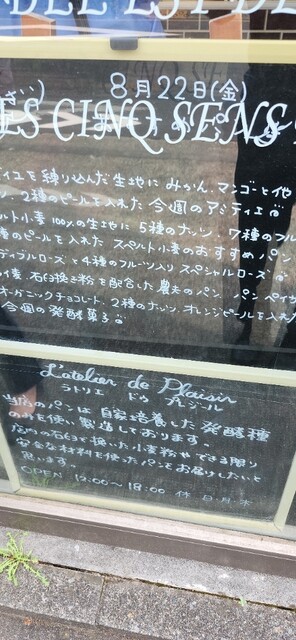 8月22日(金)
ES CINQ SENS
ティエを練り込んだ生地に みかん、マンゴと他
2種のピールを入れた 今週のアミティエ
ルト小麦100%の生地に 5種のナッツ、7種のフル
のピールを入れた スペルト小麦のおすすめパン
ローズと4種のフルーツ入り スペシャルローズ
石臼挽き粉を配合した 農夫のパン パンペイザ
オーガニックチョコレート、2種のナッツ、オレンジピールを入れた
今週の発酵菓子
L'atelier de Plaisir
ラトリエ ドゥ プレジール
当店のパンは 自家培養した 発酵種
のみを使い 製造しております。
店内の石臼で挽いた小麦粉や できる限り
安全な材料を使ったパンをお届けしたいと
思います。
OPEN 12:00〜18:00 休 日・月・木